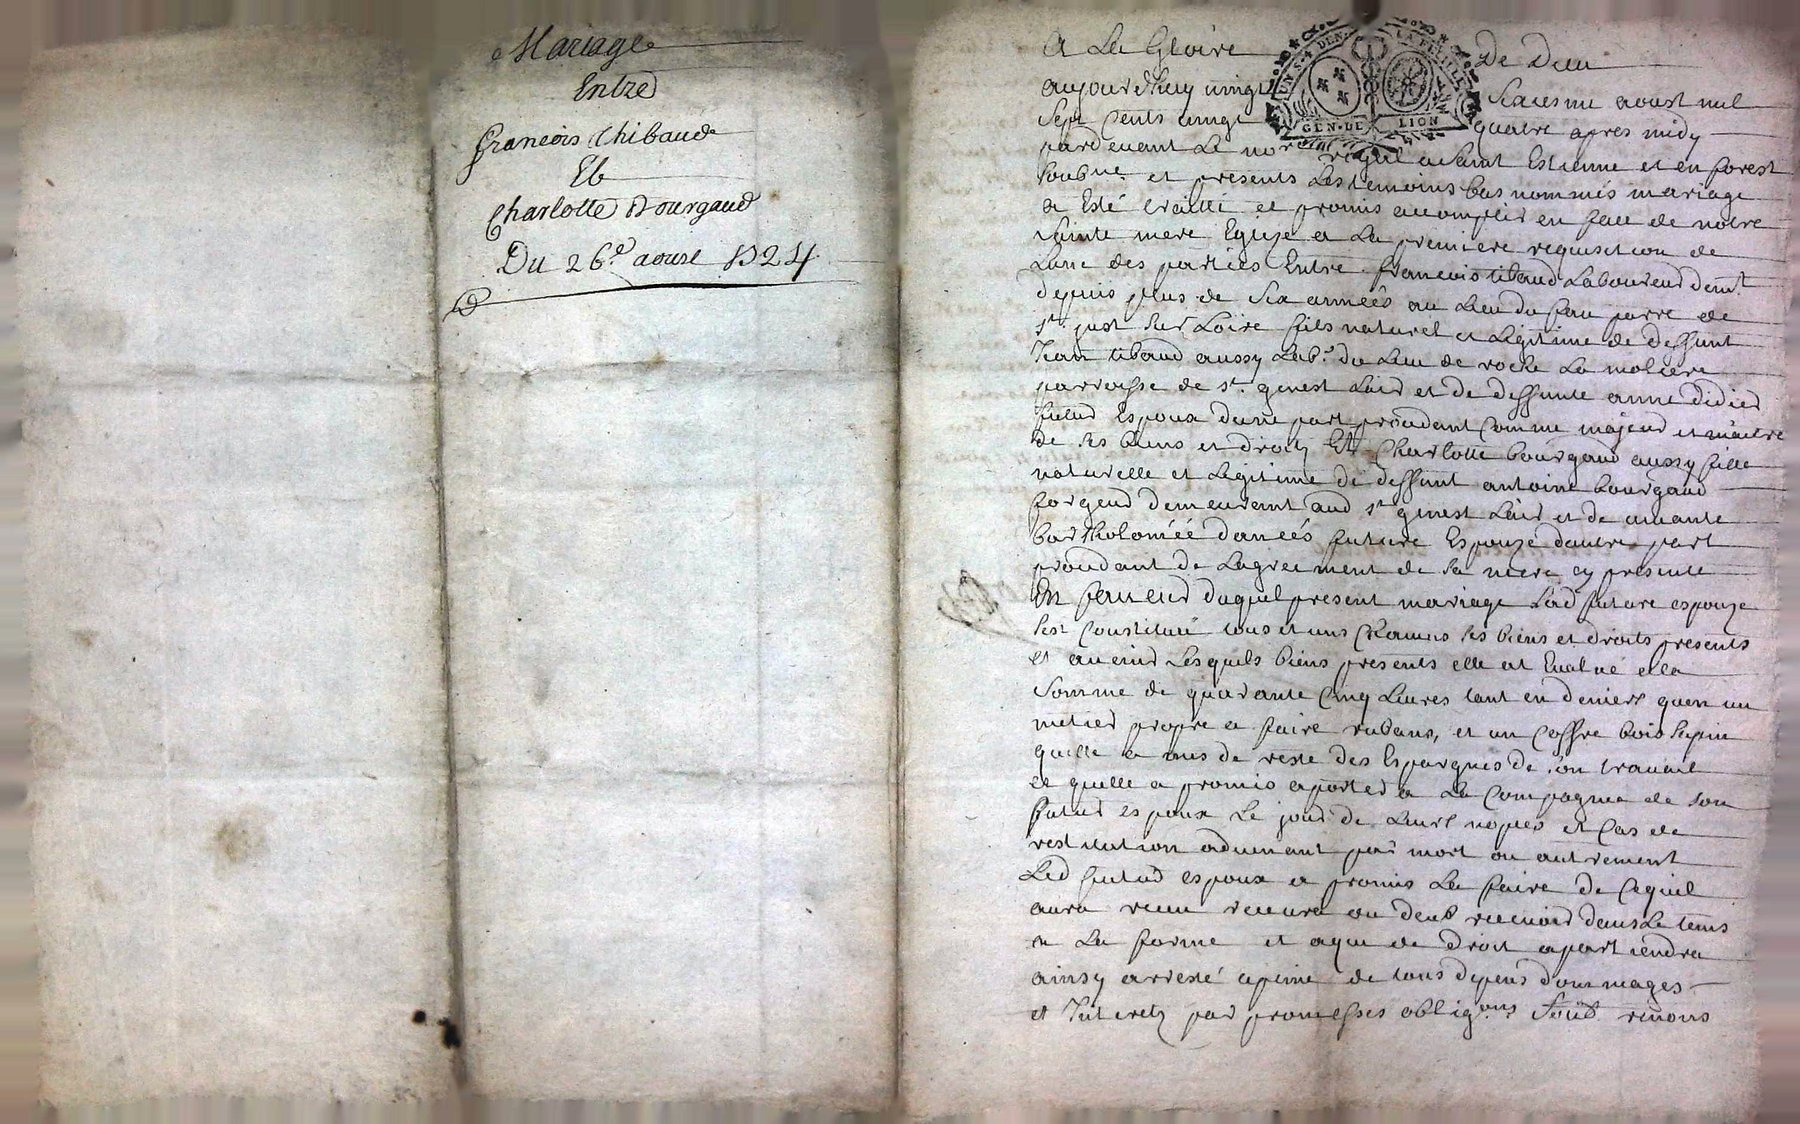 Mariage
Entre
francois Thibaud
Et
Charlotte Bourgaud
Du 26e aoust 1724
A La Gloire De Dieu
UN S. 4 DEN. LA FEUILLE
GEN. DE LION
aujourdhuy vingt Sixiesme aoust mil
Sept Cents vingt quatre apres midy
pardevant Le nore royal a Saint Estienne et en forest
soubne et presents Les temoins bas nommés mariage
a Esté traitté et promis accomplir en face de notre
sainte mere Eglize a La premiere requisition de
Lune des parties Entre francois tibaud Laboureur demt
depuis plus de Six années au Lieu du parre de
st just sur Loire fils naturel et Legitime de deffunt
Jean tibaud aussy Labr du Lieu de roche La moliere
parroisse de st genest Lerd et de deffunte anne didier
futur Espoux dune part procedant Comme majeur et maitre
de ses biens et droitz Et Charlotte bourgaud aussy fille
naturelle et Legitime de deffunt antoine bourgaud
forgeur demeurant aud st genest Lerd et de vivante
bartholomée dancés future Espouze dautre part
procedant de Lagreement de sa mere cy presente
En faveur duquel present mariage Lad future espouze
sest Constitué tous et uns Chacuns ses biens et droits presents
et avenir Lesquels biens presents elle at Evalué a la
Somme de quarante Cinq Livres tant en deniers quen un
metier propre a faire rubans, et un Coffre bois sapin
quelle a mes de reste des Espargnes de son travail
et quelle a promis aporter a La Compagnie de son
futur espoux Le jour de Leurs nopces et Cas de
restitution advenant par mort ou autrement
Led futur espoux a promis La faire de Cequil
aura receu recevra ou deub recevoir dans Le tems
et La forme et aqui de droit apartiendra
ainsy arresté apeine de tous depens dommages
et Intretz par promesses obligons Soub renons